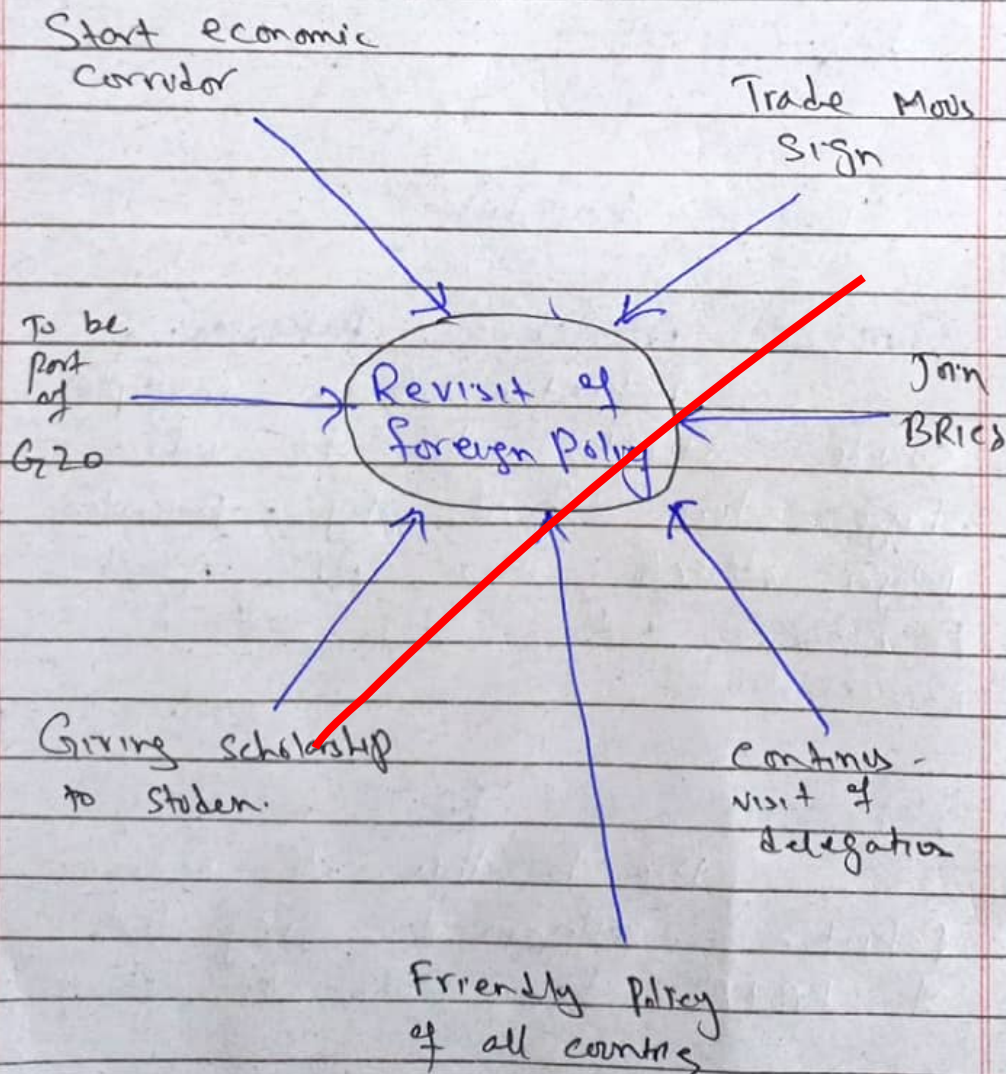 Start economic
Corridor
Trade MoUs
Sign
To be
part
of
G20
Revisit of
foreign Policy
Join
BRICS
Giving scholarship
to studen.
continus -
visit of
delegation
Friendly Policy
of all countris